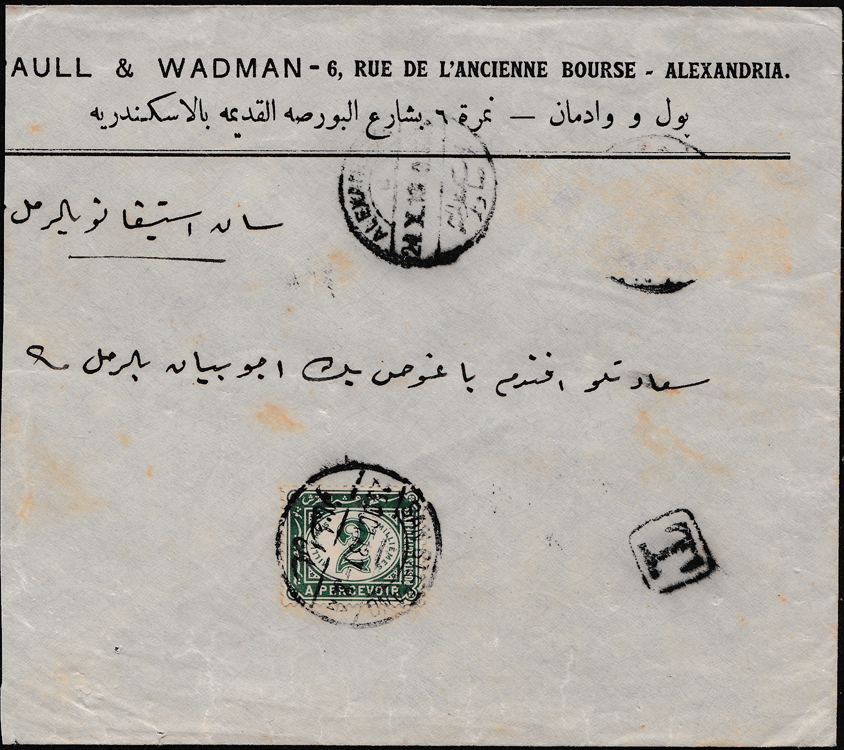 PAULL & WADMAN - 6, RUE DE L'ANCIENNE BOURSE - ALEXANDRIA.
پول و وادمان — نمرة ٦ بشارع البورصه القديمه بالاسكندريه
ALEXAN
24 X 19
سان استيفانو بالرمل
سعادتلو افندم باغوص بك اجوبيان بالرمل
2
MILLIEMES
A PERCEVOIR
T